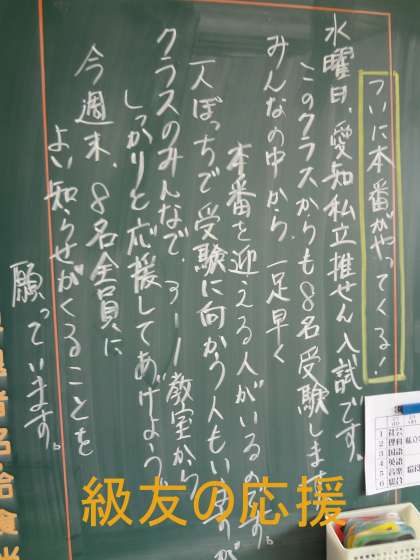 ついに本番がやってくる!
水曜日、愛知私立推せん入試です。
このクラスからも8名受験します
みんなの中から、一足早く
本番を迎える人がいるのです。
一人ぼっちで受験に向かう人もいますが
クラスのみんなで、3-1教室から
しっかりと応援してあげよう。
今週末、8名全員に
よい知らせがくることを
願っています。
級友の応援
1 社会
2 理科
3 国語
4 英語
5 音楽
6 総合